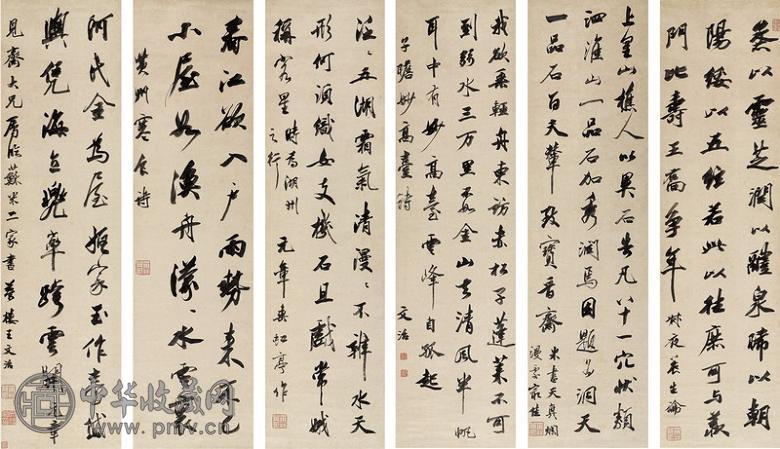 蒸以靈芝潤以醴泉晞以朝
陽綏以五絃若此以往庶可與羨
門比壽王喬爭年 叔夜養生論
上皇山樵人以異石告凡八十一穴狀類
泗淮山一品石加秀潤焉因題為洞天
一品石百夫輦致寶晉齋 米書天真爛
漫雲最佳
我欲乘輕舟東訪赤松子蓬萊不可
到弱水三万里不如金山去清風半帆
耳中有妙高臺雲峰自孤起
子瞻妙高臺詩 文治
泛〻五湖霜氣清漫〻不辨水天
形何須織女支機石且戲常娥
稱客星 時為湖州
之行 元章垂虹亭作
春江欲入戶雨勢來不已
小屋如漁舟濛〻水雲裏
黃州寒食詩
阿氏金為屋姬家玉作臺
海立車跨雲元章
見齋大兄屬臨蘇米二家書 夢樓王文治
中华收藏网
www.pmcv.cn